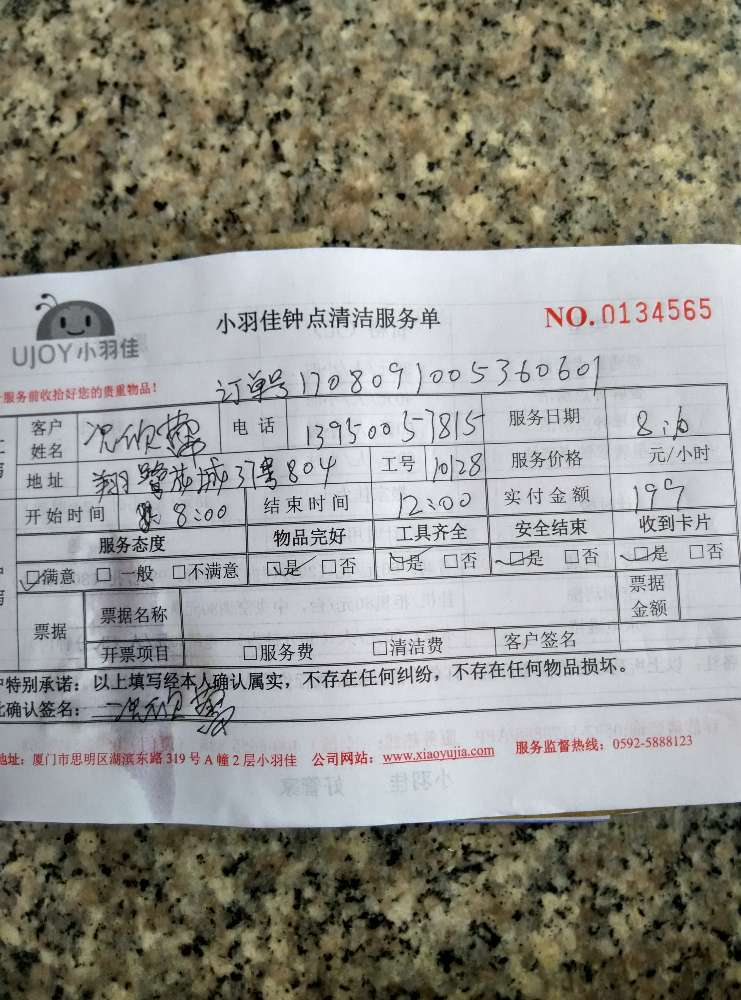 UJOY小羽佳
小羽佳钟点清洁服务单
NO. 0134565
服务前收拾好您的贵重物品!
订单号 1708091005360601
客户姓名 电话 13950053815 服务日期
地址 翔鹭花城37号804 工号 10128 服务价格 元/小时
开始时间 8:00 结束时间 12:00 实付金额 199
服务态度 物品完好 工具齐全 安全结束 收到卡片
□满意 □一般 □不满意 □是 □否 □是 □否 □是 □否 □是 □否
票据 票据名称 票据金额
开票项目 □服务费 □清洁费 客户签名
特别承诺:以上填写经本人确认属实,不存在任何纠纷,不存在任何物品损坏。
确认签名:
地址:厦门市思明区湖滨东路319号A幢2层小羽佳 公司网站:www.xiaoyujia.com 服务监督热线:0592-5888123